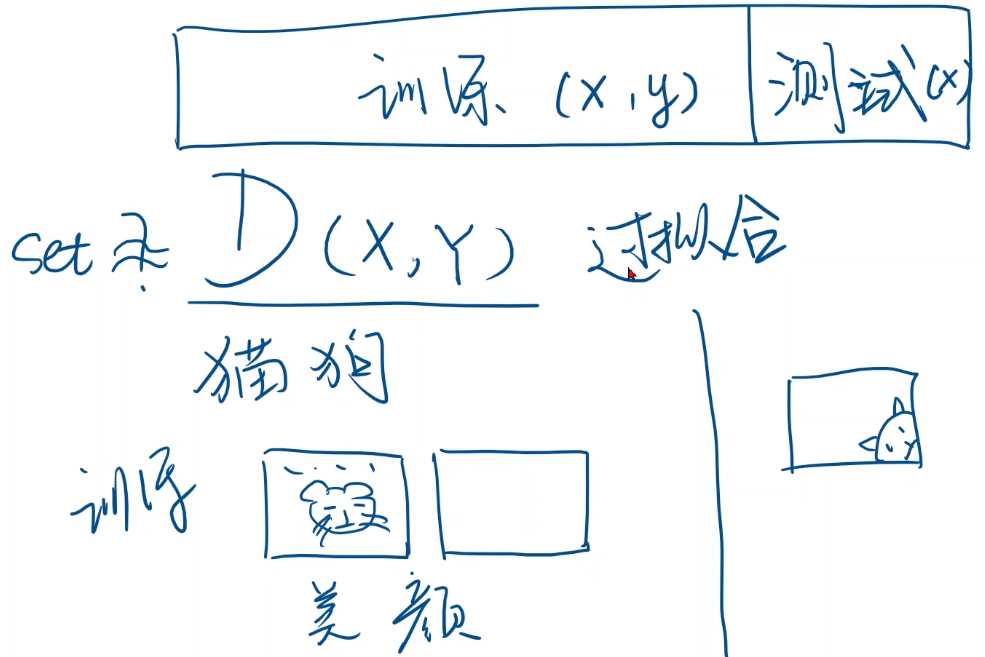 训练 (X,y) 测试(x)
set D(X,Y) 过拟合
猫狗
训练
美颜